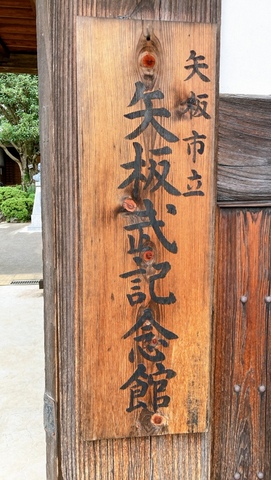 矢板市立
矢板武記念館